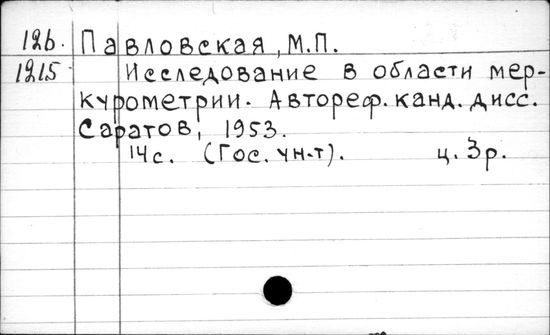 126. Павловская, М.П.
1215 Исследование в области мер-
курометрии. Автореф. канд. дисс.
Саратов, 1953.
14 с. (Гос. ун-т). ц. 3 р.